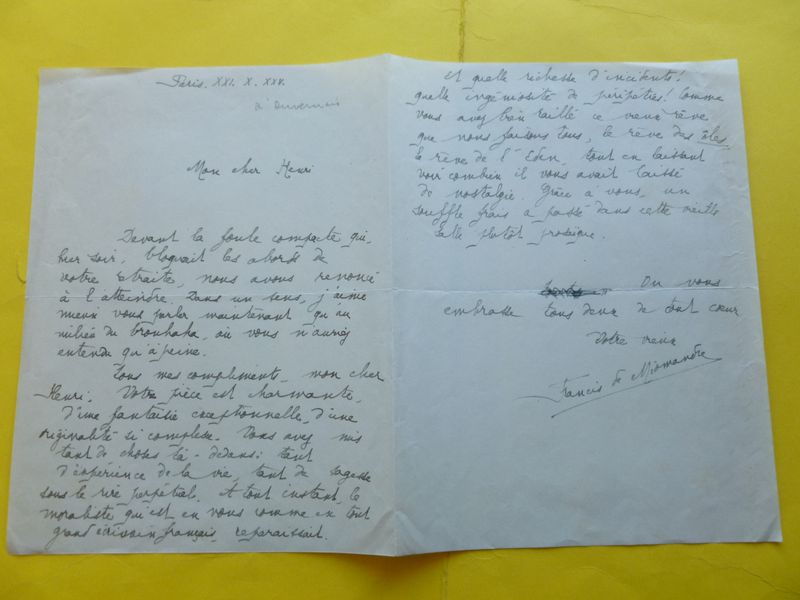 Paris. XXI. X. XXV.
à Duvernois
Mon cher Henri
Devant la foule compacte qui,
hier soir, bloquait les abords de
votre retraite, nous avons renoncé
à l'atteindre. Dans un sens, j'aime
mieux vous parler maintenant qu'au
milieu du brouhaha, où vous n'auriez
entendu qu'à peine.
Tous mes compliments, mon cher
Henri. Votre pièce est charmante,
d'une fantaisie exceptionnelle, d'une
originalité si complexe. Vous avez mis
tant de choses là-dedans: tant
d'expérience de la vie, tant de sagesse
sous le rire perpétuel. A tout instant, le
moraliste qui est en vous comme en tout
grand écrivain français, reparaissait.
et quelle richesse d'incidents!
quelle ingéniosité de péripéties! Comme
vous avez bien raillé ce vieux rêve
que nous faisons tous, le rêve des îles,
le rêve de l'Eden, tout en laissant
voir combien il vous avait laissé
de nostalgie. Grâce à vous, un
souffle frais a passé dans cette vieille
salle plutôt prosaïque.
On vous
embrasse tous deux de tout cœur
Votre vieux
Francis de Miomandre